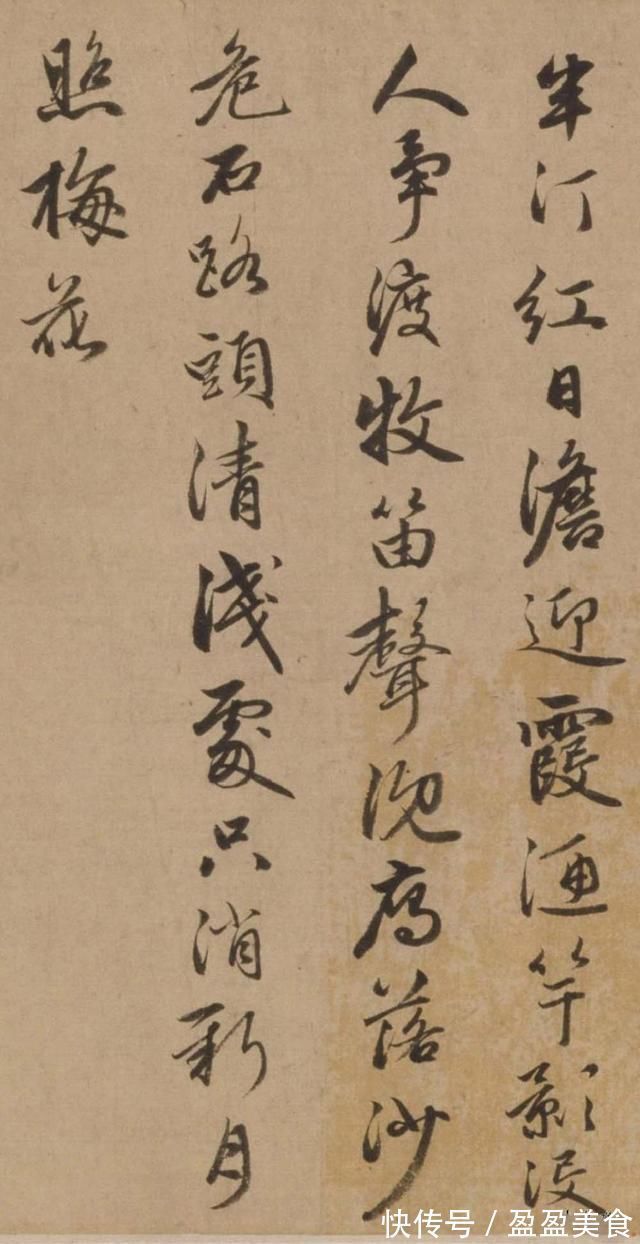 半汀紅日澹迎霞酒竿影没
人爭渡牧笛聲沉雁落沙
危石路頭清淺處只消新月
照梅花
快传号/盈盈美食